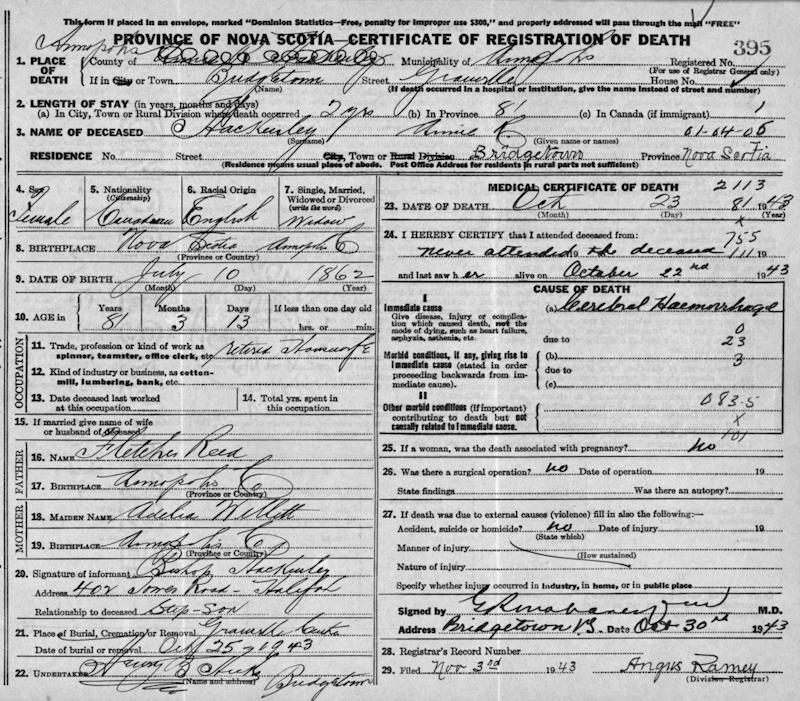 This form if placed in an envelope, marked "Dominion Statistics—Free, penalty for improper use $300," and properly addressed will pass through the mail "FREE"
PROVINCE OF NOVA SCOTIA—CERTIFICATE OF REGISTRATION OF DEATH
395
Annapolis
1. PLACE OF DEATH County of Municipality of Annapolis Registered No.
(For use of Registrar General only)
If in City or Town Bridgetown Street Granville House No.
(Name) (If death occurred in a hospital or institution, give the name instead of street and number)
2. LENGTH OF STAY (in years, months and days)
(a) In City, Town or Rural Division where death occurred 2 yrs (b) In Province 81 (c) In Canada (if immigrant)
3. NAME OF DECEASED Hackenley Annie R 01-04-06
(Surname) (Given name or names)
RESIDENCE No. Street City, Town or Rural Division Bridgetown Province Nova Scotia
(Residence means usual place of abode. Post Office Address for residents in rural parts not sufficient)
4. Sex Female
5. Nationality (Citizenship) Canadian
6. Racial Origin English
7. Single, Married, Widowed or Divorced (write the word) Widow
8. BIRTHPLACE Nova Scotia Annapolis Co
(Province or Country)
9. DATE OF BIRTH July 10 1862
(Month) (Day) (Year)
10. AGE in Years 81 Months 3 Days 13 If less than one day old hrs. or min.
OCCUPATION
11. Trade, profession or kind of work as spinner, teamster, office clerk, etc. retired Housewife
12. Kind of industry or business, as cotton-mill, lumbering, bank, etc.
13. Date deceased last worked at this occupation
14. Total yrs. spent in this occupation
15. If married give name of wife or husband of deceased
FATHER
16. NAME Fletcher Reed
17. BIRTHPLACE Annapolis Co
(Province or Country)
MOTHER
18. MAIDEN NAME Adelia Willett
19. BIRTHPLACE Annapolis Co
(Province or Country)
20. Signature of informant Bishop Hackenley
Address 402 Tower Road - Halifax
Relationship to deceased Step-Son
21. Place of Burial, Cremation or Removal Granville
Date of burial or removal Oct 25 1943
22. UNDERTAKER Bridgetown
(Name and address)
MEDICAL CERTIFICATE OF DEATH 2113
23. DATE OF DEATH Oct 23 81 1943
(Month) (Day) (Year)
x
24. I HEREBY CERTIFY that I attended deceased from: 755
never attended the deceased 111 19
and last saw her alive on October 22nd 1943
CAUSE OF DEATH
I
Immediate cause (a) Cerebral Haemorrhage
Give disease, injury or complication which caused death, not the mode of dying, such as heart failure, asphyxia, asthenia, etc.
0
due to 23
Morbid conditions, if any, giving rise to immediate cause (stated in order proceeding backwards from immediate cause).
(b) 3
due to
(c)
II
Other morbid conditions (if important) contributing to death but not causally related to immediate cause.
083.5
x
101
25. If a woman, was the death associated with pregnancy? no
26. Was there a surgical operation? no Date of operation 19
State findings Was there an autopsy?
27. If death was due to external causes (violence) fill in also the following:—
Accident, suicide or homicide? no Date of injury 19
(State which)
Manner of injury
(How sustained)
Nature of injury
Specify whether injury occurred in industry, in home, or in public place
Signed by M.D.
Address Bridgetown N.S. Date Oct 30th 1943
28. Registrar's Record Number
29. Filed Nov 3rd 1943 Angus Ramey
(Division Registrar)